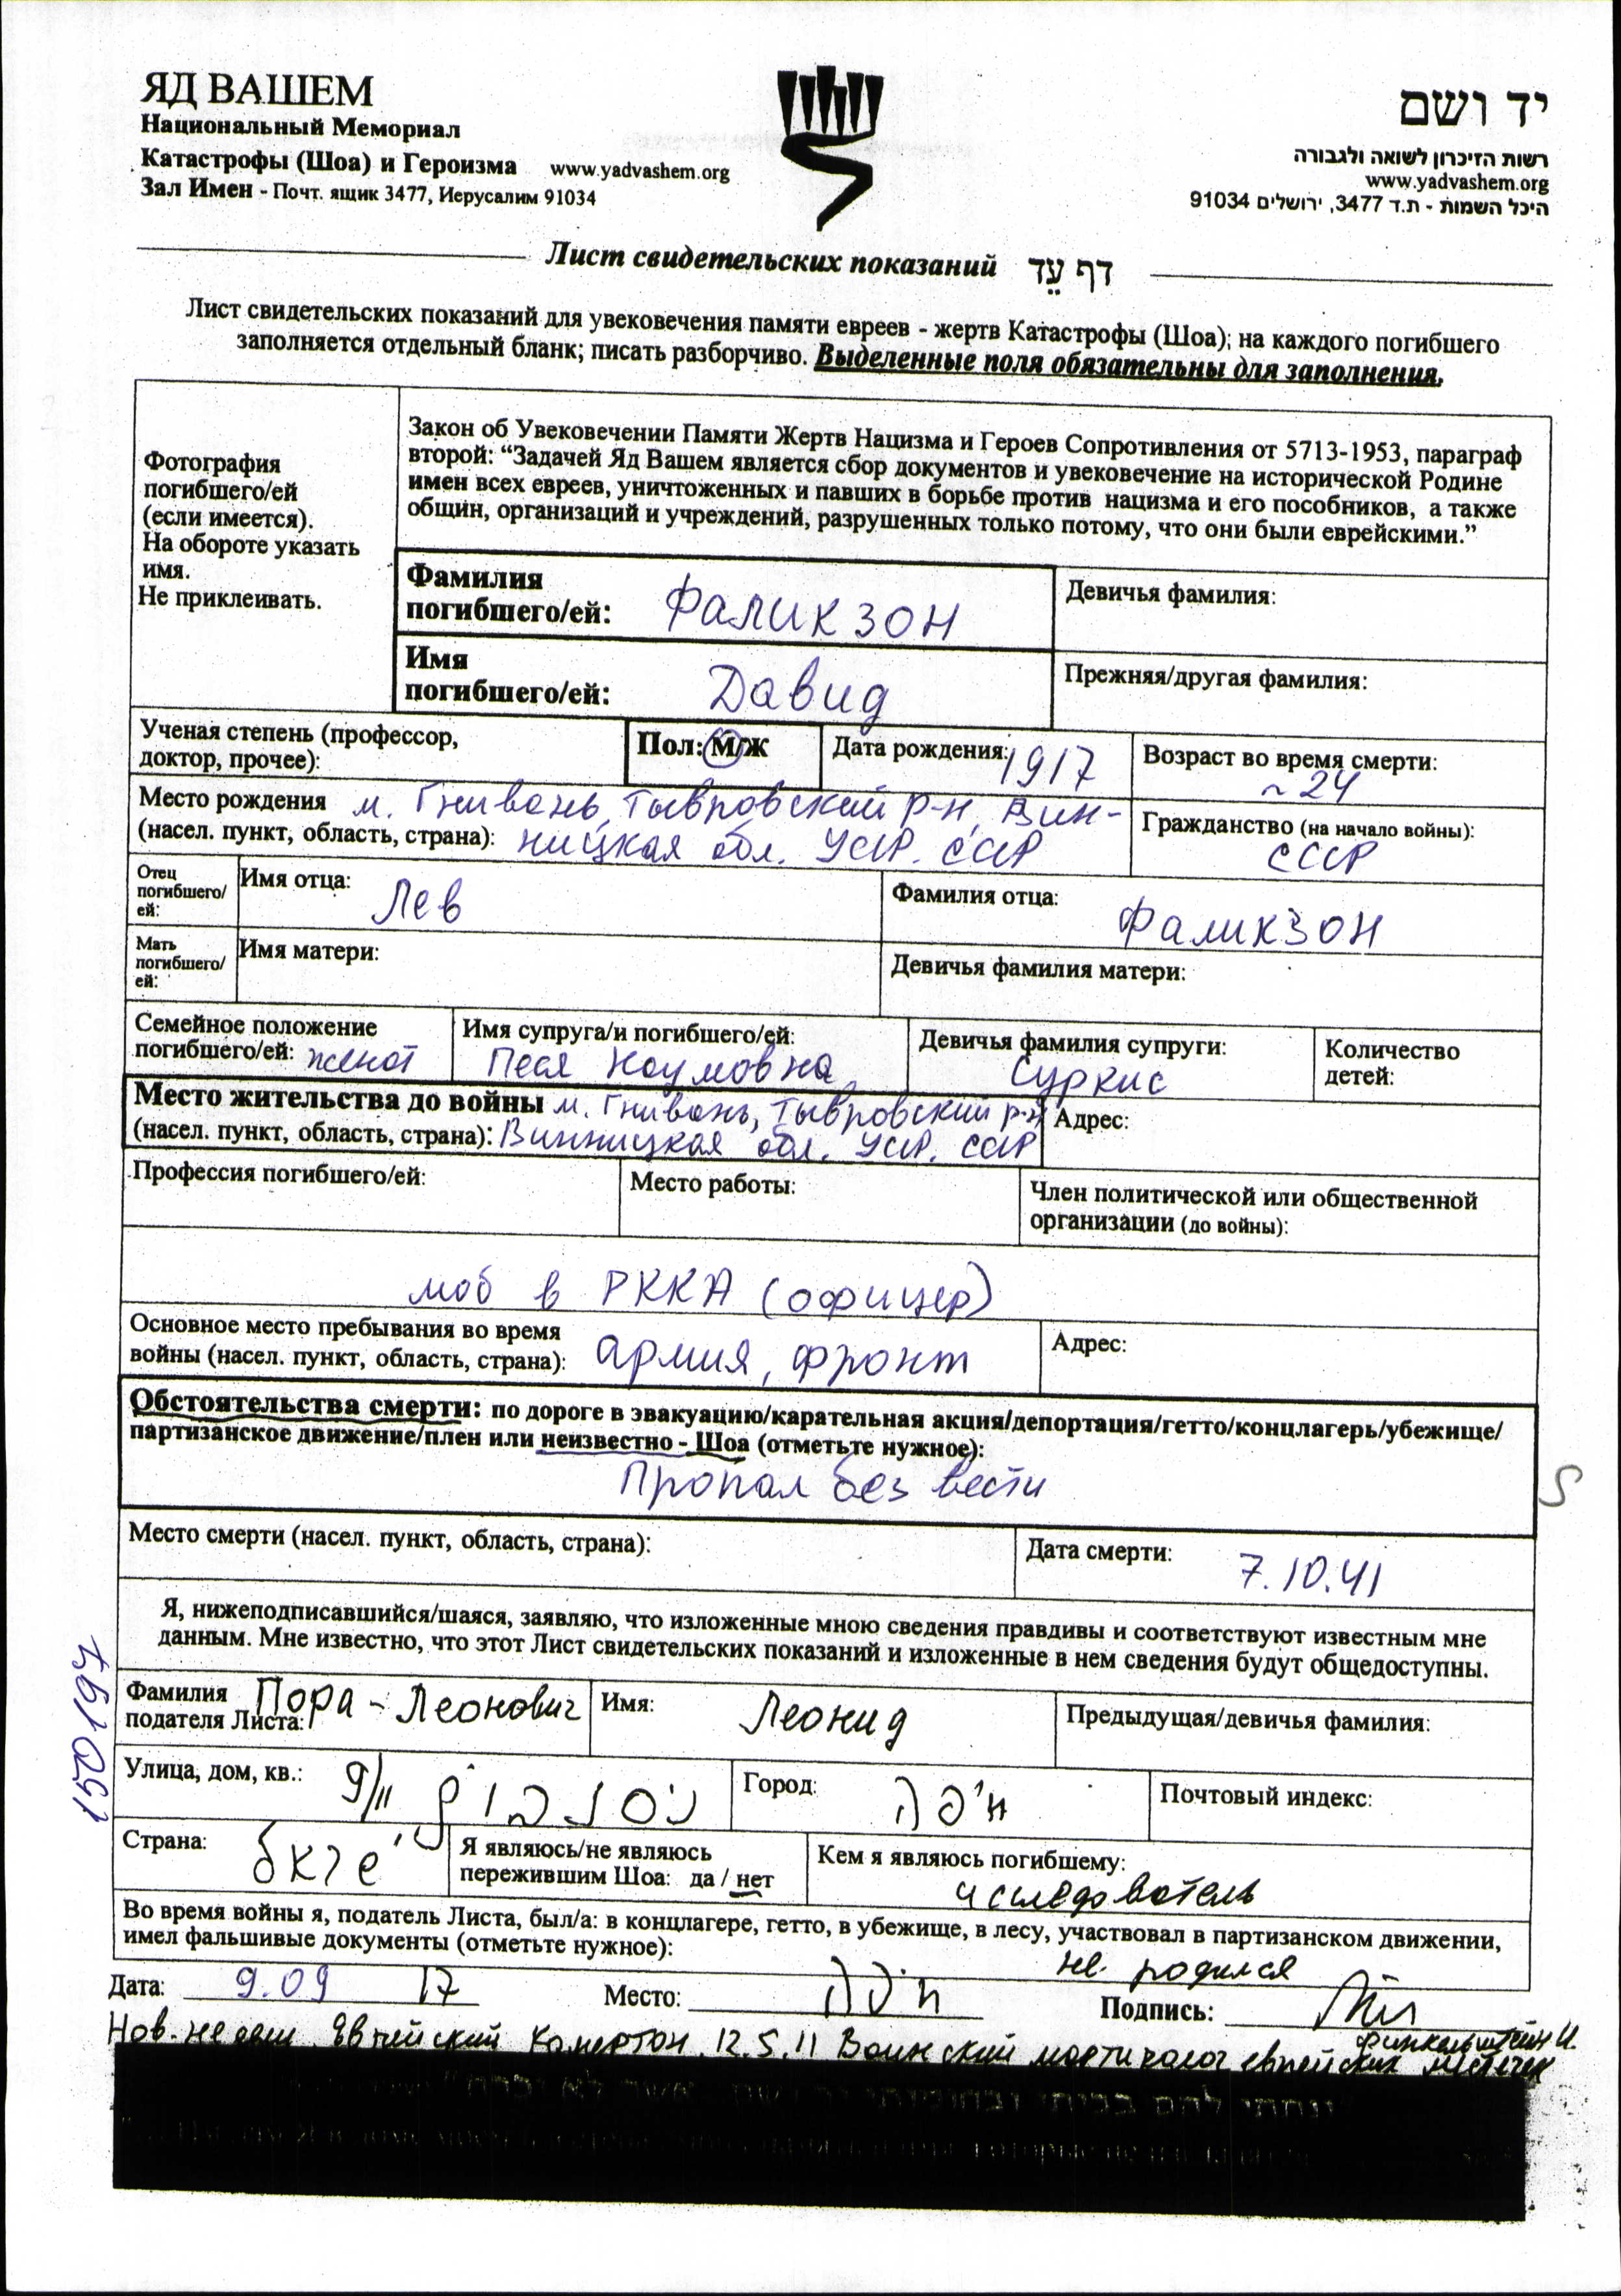 ЯД ВАШЕМ
Национальный Мемориал
Катастрофы (Шоа) и Героизма www.yadvashem.org
Зал Имен - Почт. ящик 3477, Иерусалим 91034
יד ושם
רשות הזיכרון לשואה ולגבורה
www.yadvashem.org
היכל השמות - ת.ד 3477, ירושלים 91034
Лист свидетельских показаний דף עֵד
Лист свидетельских показаний для увековечения памяти евреев - жертв Катастрофы (Шоа); на каждого погибшего
заполняется отдельный бланк; писать разборчиво. Выделенные поля обязательны для заполнения.
Фотография
погибшего/ей
(если имеется).
На обороте указать
имя.
Не приклеивать.
Закон об Увековечении Памяти Жертв Нацизма и Героев Сопротивления от 5713-1953, параграф
второй: “Задачей Яд Вашем является сбор документов и увековечение на исторической Родине
имен всех евреев, уничтоженных и павших в борьбе против нацизма и его пособников, а также
общин, организаций и учреждений, разрушенных только потому, что они были еврейскими.”
Фамилия
погибшего/ей: Фаликзон
Девичья фамилия:
Имя
погибшего/ей: Давид
Прежняя/другая фамилия:
Ученая степень (профессор,
доктор, прочее):
Пол: М/Ж
Дата рождения: 1917
Возраст во время смерти:
~24
Место рождения м. Гнивань, Тывровский р-н, Вин-
(насел. пункт, область, страна): ницкая обл. УССР. СССР
Гражданство (на начало войны):
СССР
Отец
погибшего/
ей:
Имя отца: Лев
Фамилия отца: Фаликзон
Мать
погибшего/
ей:
Имя матери:
Девичья фамилия матери:
Семейное положение
погибшего/ей: женат
Имя супруга/и погибшего/ей:
Песя Наумовна
Девичья фамилия супруги:
Суркис
Количество
детей:
Место жительства до войны м. Гнивань, Тывровский р-н
(насел. пункт, область, страна): Винницкая обл. УССР. СССР
Адрес:
Профессия погибшего/ей:
Место работы:
Член политической или общественной
организации (до войны):
моб в РККА (офицер)
Основное место пребывания во время
войны (насел. пункт, область, страна): армия, фронт
Адрес:
Обстоятельства смерти: по дороге в эвакуацию/карательная акция/депортация/гетто/концлагерь/убежище/
партизанское движение/плен или неизвестно - Шоа (отметьте нужное):
Пропал без вести
S
Место смерти (насел. пункт, область, страна):
Дата смерти: 7.10.41
Я, нижеподписавшийся/шаяся, заявляю, что изложенные мною сведения правдивы и соответствуют известным мне
данным. Мне известно, что этот Лист свидетельских показаний и изложенные в нем сведения будут общедоступны.
150197
Фамилия
подателя Листа: Пора-Леонович
Имя: Леонид
Предыдущая/девичья фамилия:
Улица, дом, кв.: 9/11
Город: חיפה
Почтовый индекс:
Страна: ישראל
Я являюсь/не являюсь
пережившим Шоа: да / нет
Кем я являюсь погибшему:
исследователь
Во время войны я, податель Листа, был/а: в концлагере, гетто, в убежище, в лесу, участвовал в партизанском движении,
имел фальшивые документы (отметьте нужное):
не родился
Дата: 9.09 17
Место: חיפה
Подпись:
Финкельштейн И.
Нов. недели. Еврейский Камертон. 12.5.11 Воинский мартиролог еврейских местечек